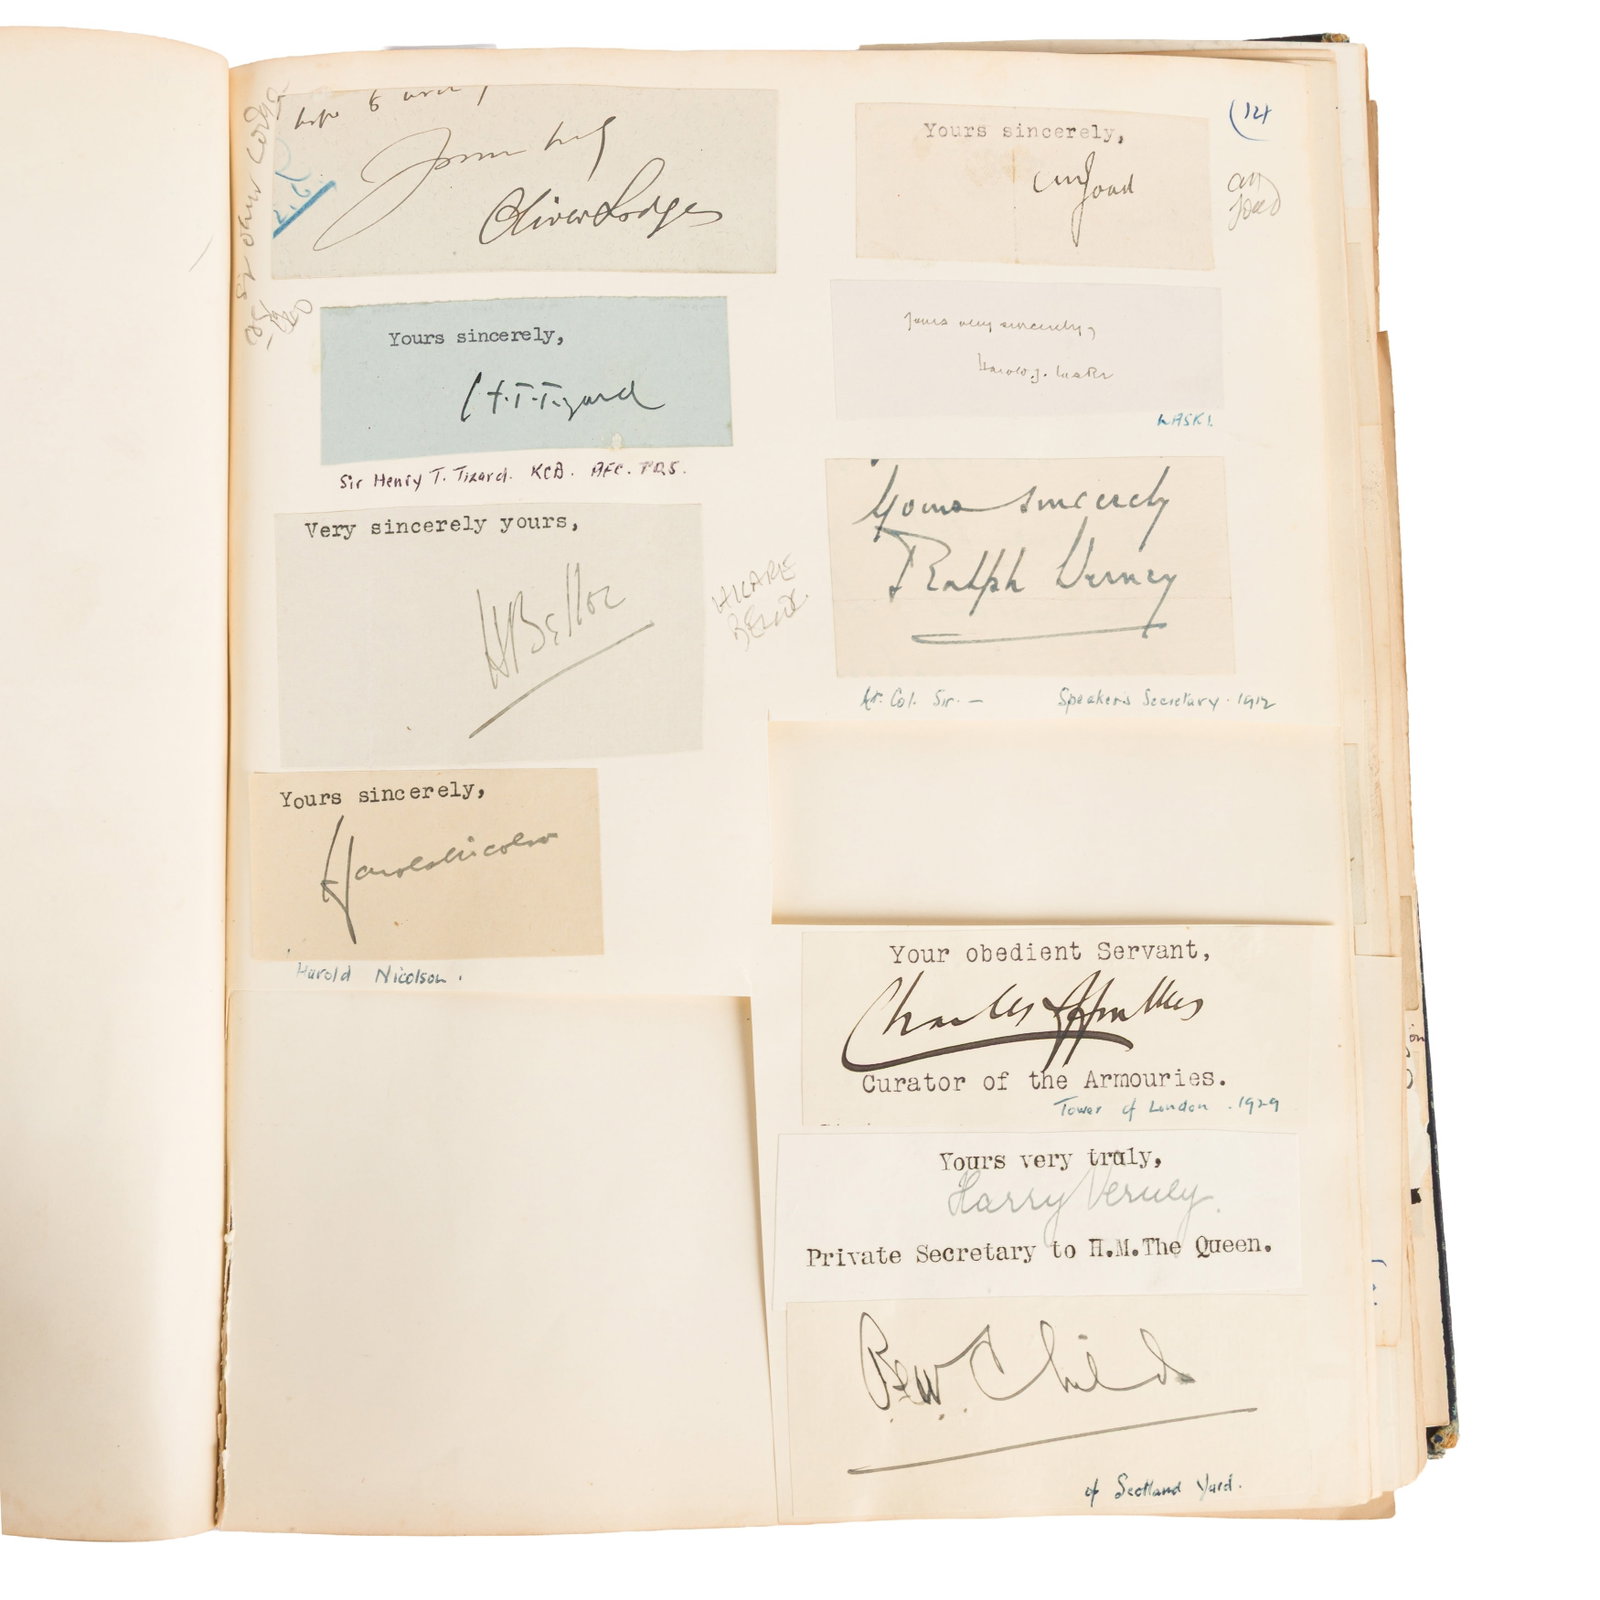 Oliver Lodge
Yours sincerely,
H.T.Tizard
Sir Henry T. Tizard. KCB. AFC. FRS.
Very sincerely yours,
H Belloc
HILARE
BELLOC
Yours sincerely,
Harold Nicolson
Harold Nicolson.
Yours sincerely,
CEM Joad
Joad
Yours very sincerely,
Harold J. Laski
LASKI.
Yours sincerely
Ralph Verney
Lt. Col. Sir. — Speaker's Secretary. 1912
Your obedient Servant,
Charles Ffoulkes
Curator of the Armouries.
Tower of London. 1929
Yours very truly,
Harry Verney.
Private Secretary to H.M.The Queen.
Childs
of Scotland Yard.